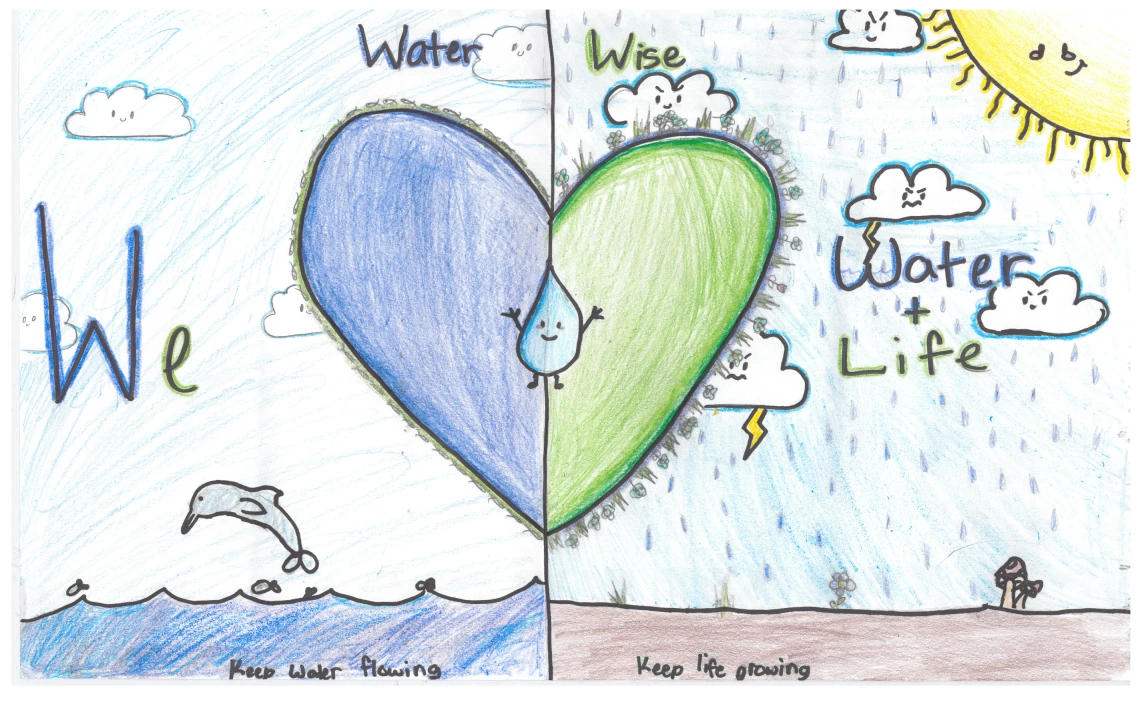 Water Wise
We
Water
+
Life
Keep water flowing
Keep life growing